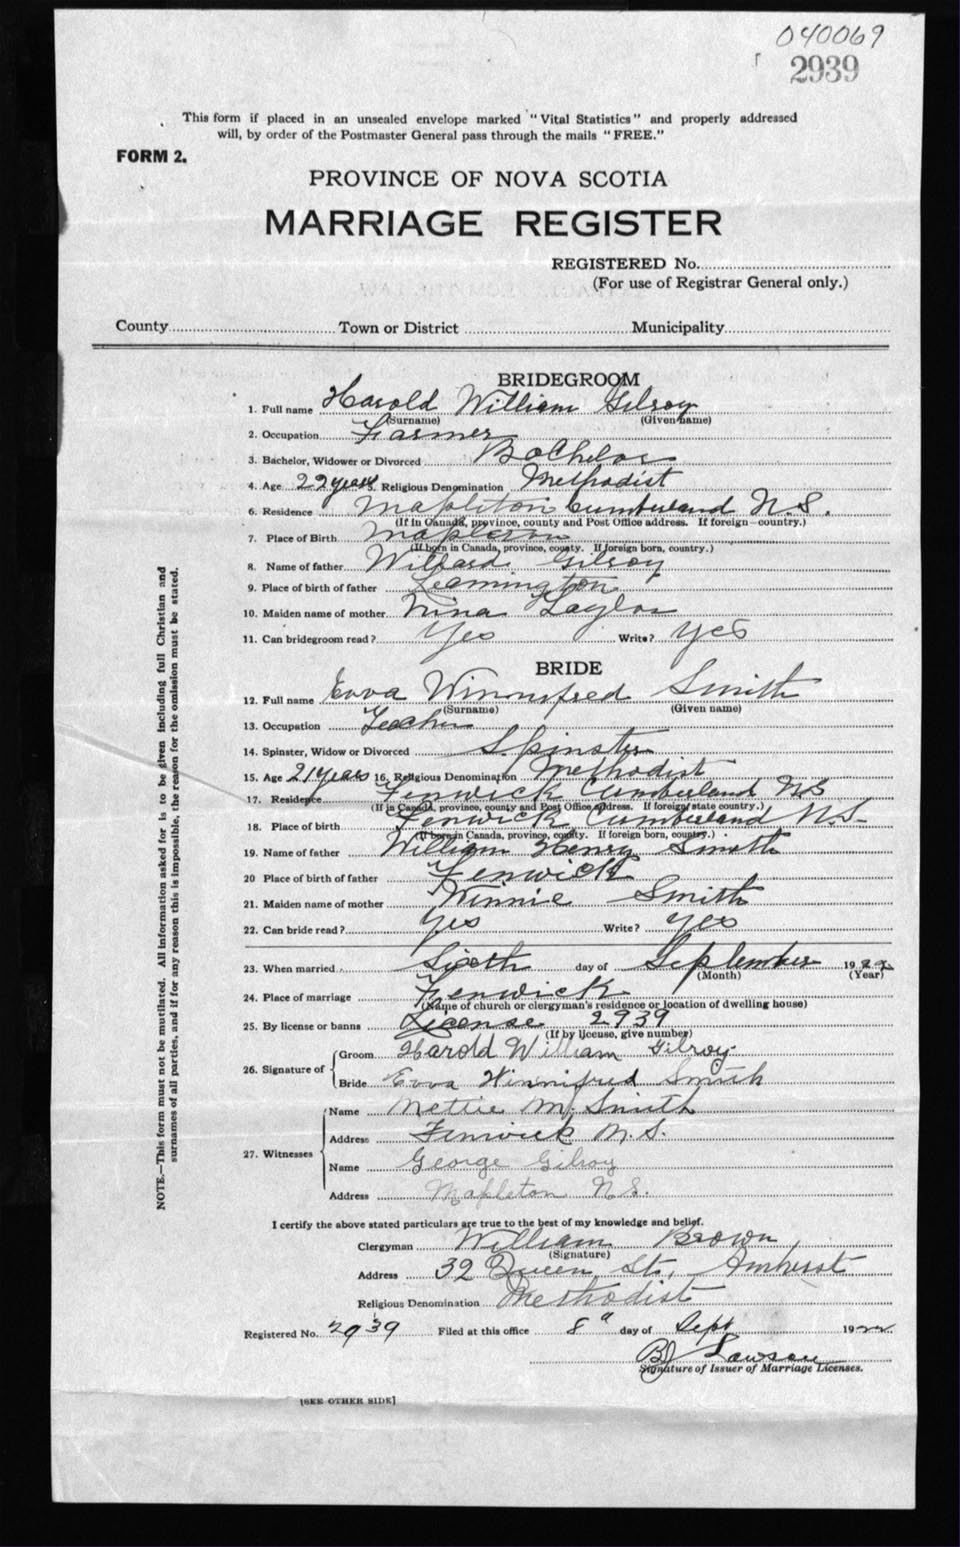 040069
2939
This form if placed in an unsealed envelope marked "Vital Statistics" and properly addressed
will, by order of the Postmaster General pass through the mails "FREE."
FORM 2.
PROVINCE OF NOVA SCOTIA
MARRIAGE REGISTER
REGISTERED No.
(For use of Registrar General only.)
County Town or District Municipality
BRIDEGROOM
1. Full name Harold William Gilroy
(Surname) (Given name)
2. Occupation Farmer
3. Bachelor, Widower or Divorced Bachelor
4. Age 22 years 5. Religious Denomination Methodist
6. Residence Mapleton Cumberland N.S.
(If in Canada, province, county and Post Office address. If foreign—country.)
7. Place of Birth Mapleton
(If born in Canada, province, county. If foreign born, country.)
8. Name of father Willard Gilroy
9. Place of birth of father Leamington
10. Maiden name of mother Nina Taylor
11. Can bridegroom read? Yes Write? Yes
BRIDE
12. Full name Evva Winnifred Smith
(Surname) (Given name)
13. Occupation Teacher
14. Spinster, Widow or Divorced Spinster
15. Age 21 years 16. Religious Denomination Methodist
17. Residence Fenwick Cumberland NS
(If in Canada, province, county and Post Office address. If foreign state country.)
18. Place of birth Fenwick Cumberland N.S.
(If born in Canada, province, county. If foreign born, country.)
19. Name of father William Henry Smith
20 Place of birth of father Fenwick
21. Maiden name of mother Winnie Smith
22. Can bride read? Yes Write? Yes
23. When married Sixth day of September 1922
(Month) (Year)
24. Place of marriage Fenwick
(Name of church or clergyman's residence or location of dwelling house)
25. By license or banns License 2939
(If by license, give number)
26. Signature of Groom Harold William Gilroy
Bride Evva Winnifred Smith
27. Witnesses Name Nettie M. Smith
Address Fenwick N.S.
Name George Gilroy
Address Mapleton N.S.
I certify the above stated particulars are true to the best of my knowledge and belief.
Clergyman William Brown
(Signature)
Address 32 Queen St., Amherst
Religious Denomination Methodist
Registered No. 2939 Filed at this office 8 day of Sept 1922
Lawson
Signature of Issuer of Marriage Licenses.
[SEE OTHER SIDE]
NOTE.—This form must not be mutilated. All information asked for is to be given including full Christian and
surnames of all parties, and if for any reason this is impossible, the reason for the omission must be stated.